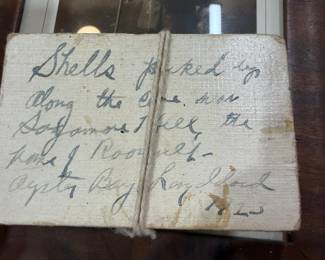 Shells picked up
along the Cove near
Sagamore Hill, the
home of Roosevelt -
Oyster Bay, Long Island